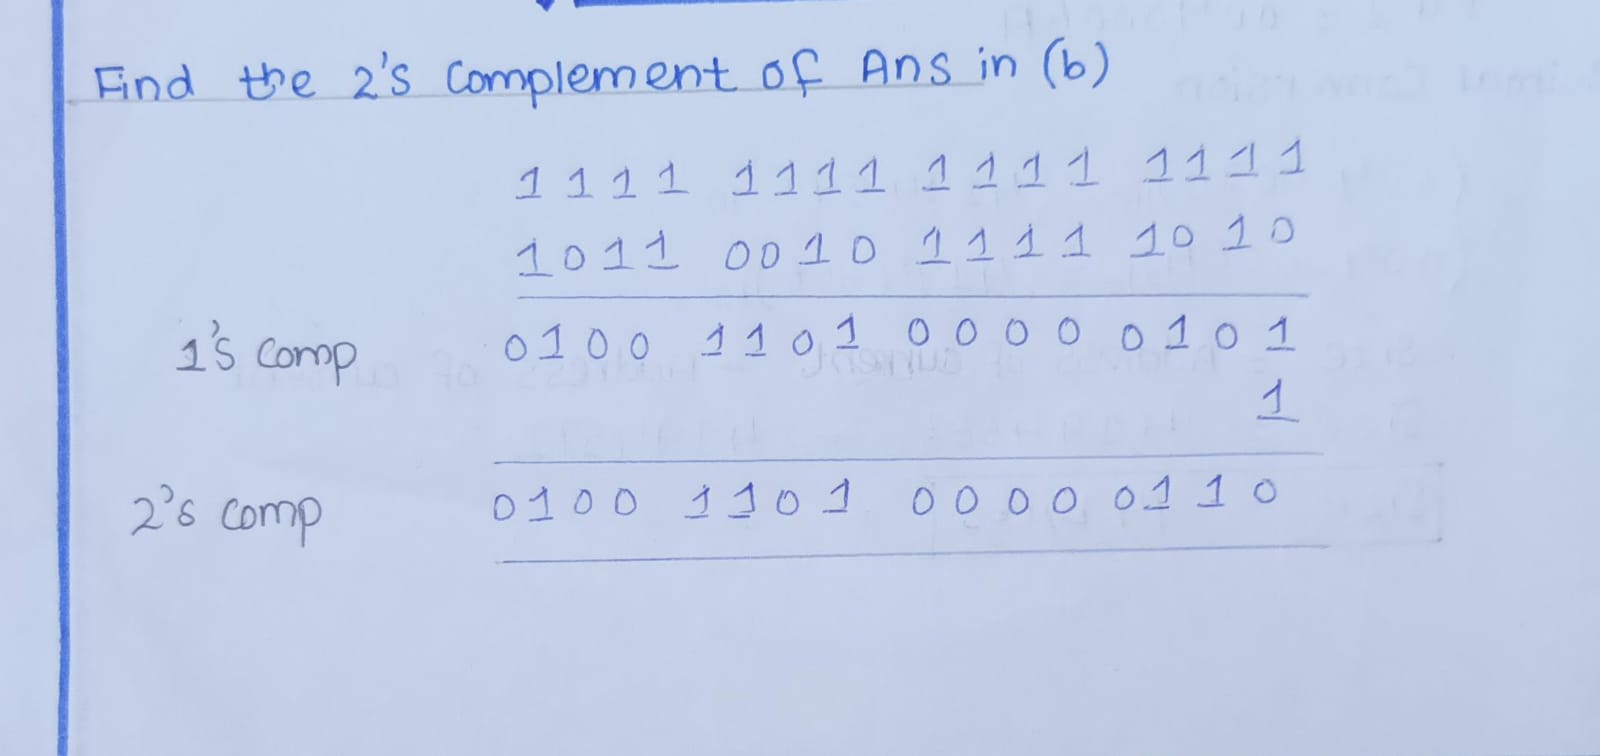 Find the 2's Complement of Ans in (b)
1 1 1 1 1 1 1 1 1 1 1 1 1 1 1 1
1 0 1 1 0 0 1 0 1 1 1 1 1 0 1 0
1's comp 0 1 0 0 1 1 0 1 0 0 0 0 0 1 0 1
1
2's comp 0 1 0 0 1 1 0 1 0 0 0 0 0 1 1 0